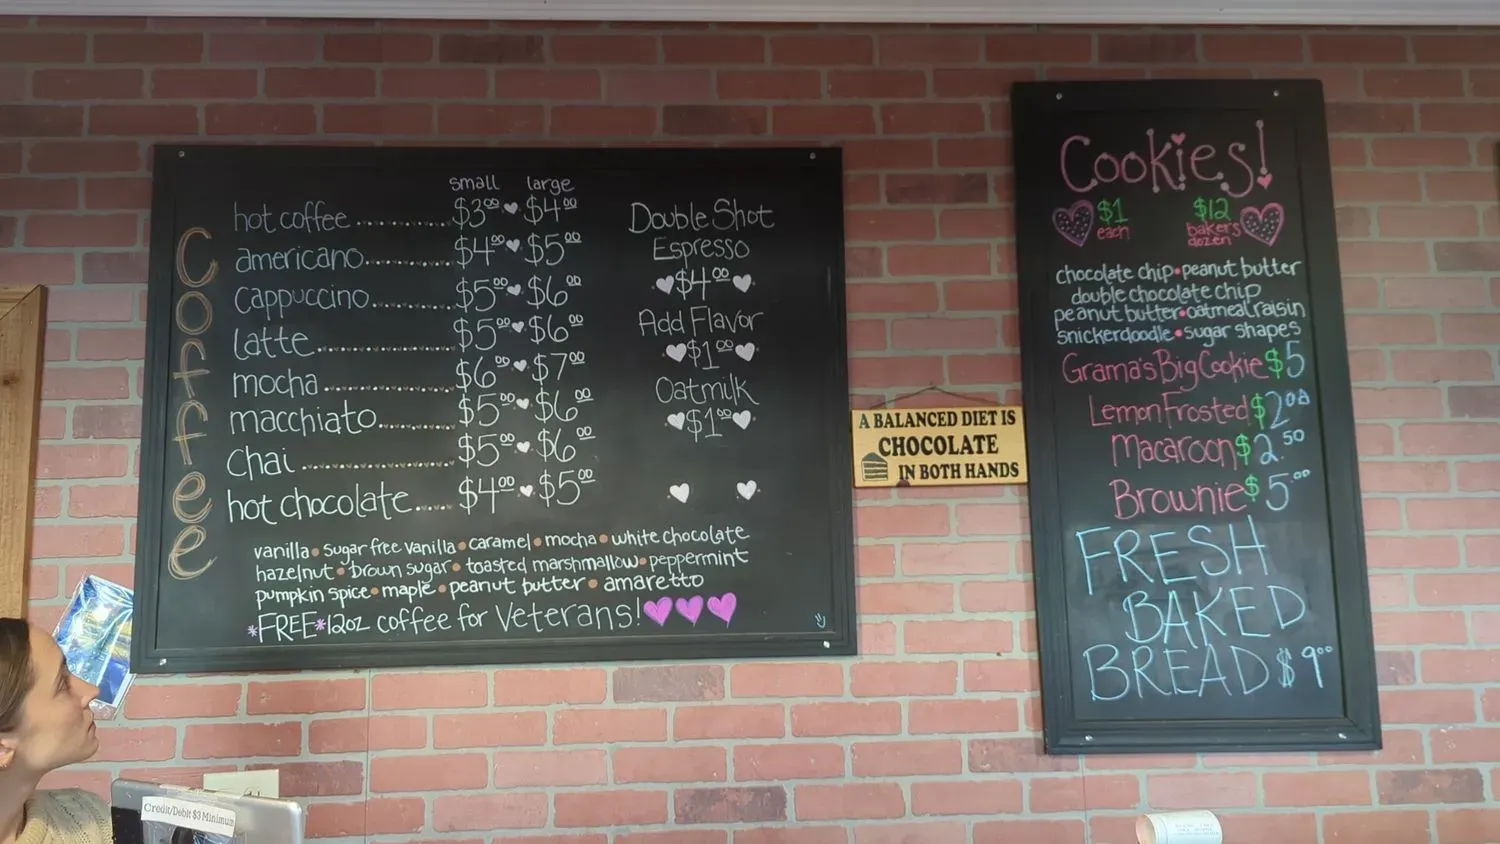 Coffee
small large
hot coffee $3.00 $4.00
americano $4.00 $5.00
cappuccino $5.00 $6.00
latte $5.00 $6.00
mocha $6.00 $7.00
macchiato $5.00 $6.00
chai $5.00 $6.00
hot chocolate $4.00 $5.00
Double Shot
Espresso
$4.00
Add Flavor
$1.00
Oatmilk
$1.00
vanilla • sugar free vanilla • caramel • mocha • white chocolate
hazelnut • brown sugar • toasted marshmallow • peppermint
pumpkin spice • maple • peanut butter • amaretto
*FREE* 12oz coffee for Veterans!
A BALANCED DIET IS
CHOCOLATE
IN BOTH HANDS
Cookies!
$1 each
$12 bakers dozen
chocolate chip • peanut butter
double chocolate chip
peanut butter • oatmeal raisin
snickerdoodle • sugar shapes
Grama's Big Cookie $5
Lemon Frosted $2.00
Macaroon $2.50
Brownie $5.00
FRESH
BAKED
BREAD $9.00
Credit/Debit $3 Minimum